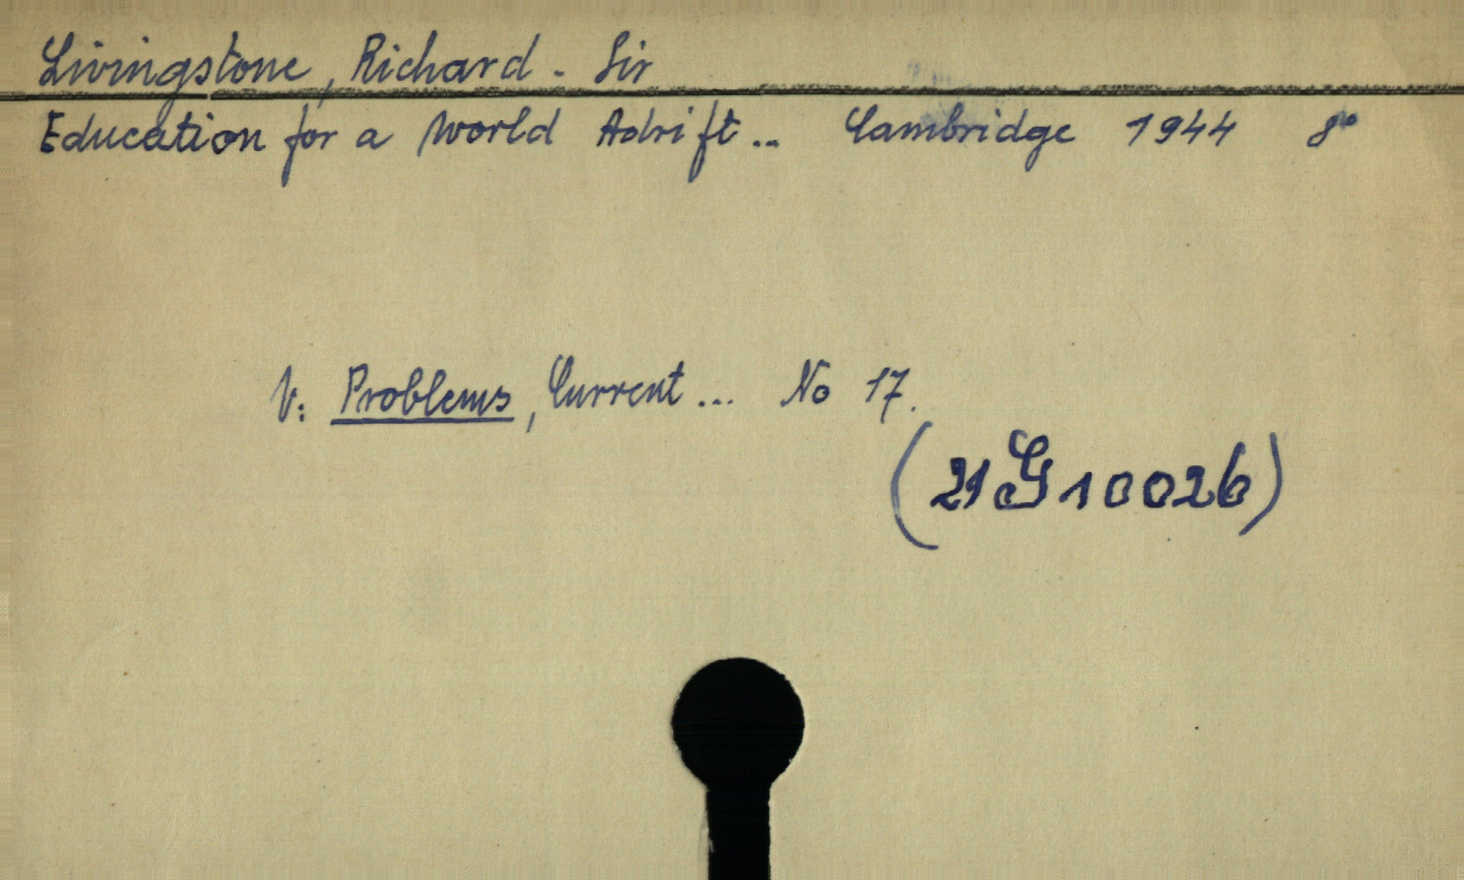 Livingstone, Richard - Sir
Education for a World Adrift .. Cambridge 1944 8°
V: Problems, Current ... No 17.
(21 G 10026)